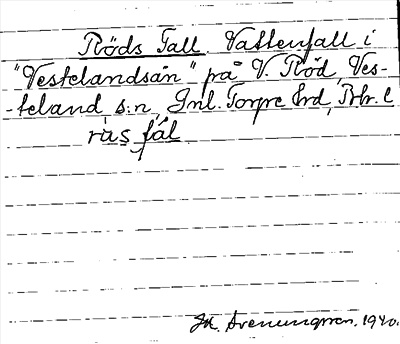 Röds Fall. Vattenfall i
"Vestelandsån" på V. Röd, Ves-
-teland s:n, Inl. Torpe hrd, Bhr. l
rüs fál
Jd. Arenungsson. 1940.